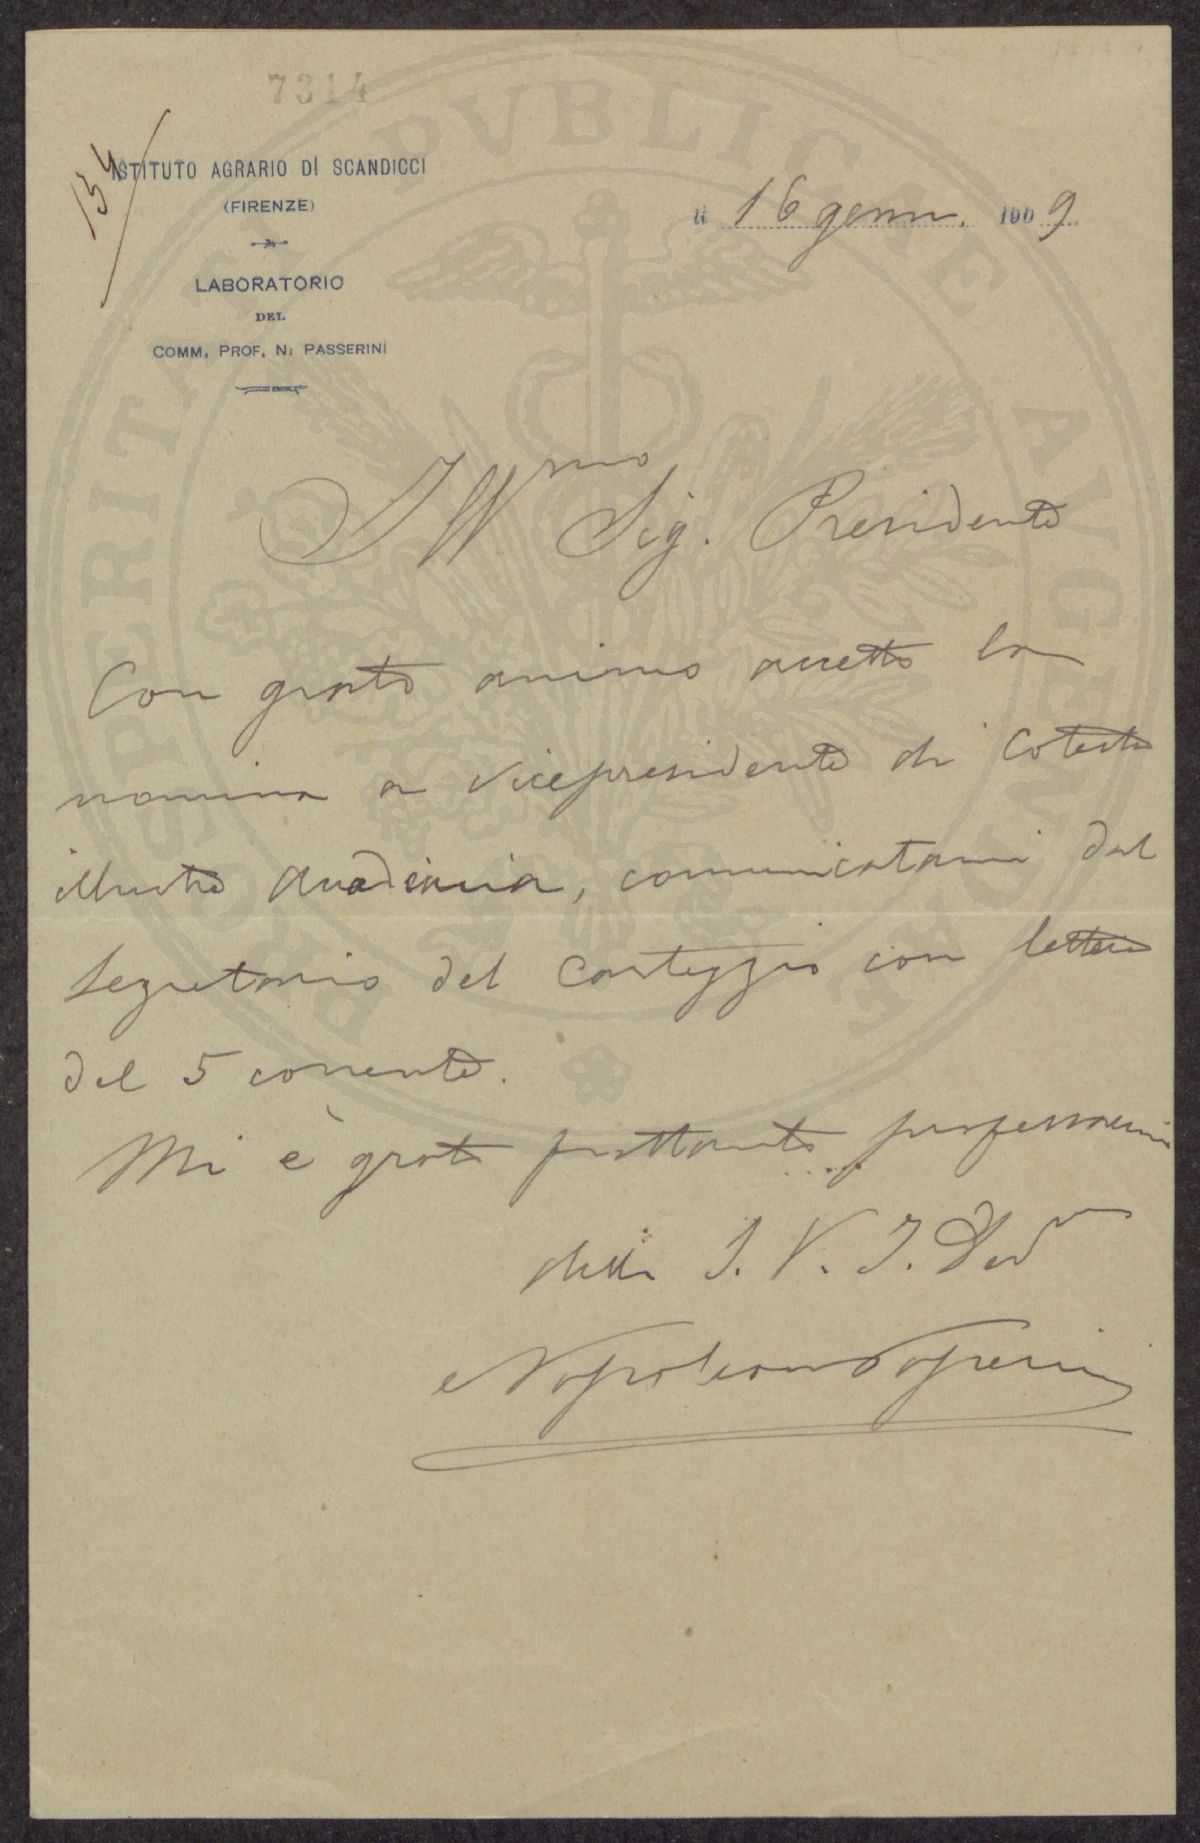 7314
134
ISTITUTO AGRARIO DI SCANDICCI
(FIRENZE)
LABORATORIO
DEL
COMM. PROF. N. PASSERINI
li 16 genn. 1909
Ill.mo Sig. Presidente
Con grato animo accetto la
nomina a Vicepresidente di Cotesta
illustre Accademia, comunicatami dal
Segretario del Carteggio con lettera
del 5 corrente.
Mi è grato frattanto professarmi
della S. V. I. Dev
Napoleone Passerini
PROSPERITATI PVBLICAE AVGENDAE